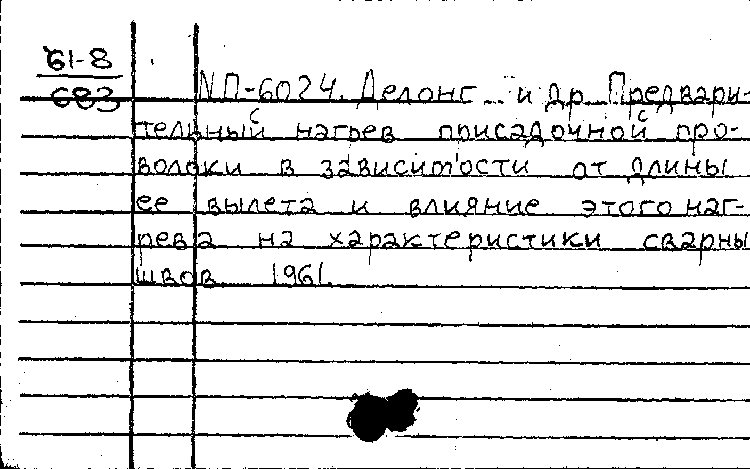 61-8
683
NП-6024. Делонг и др. Предвари-
тельный нагрев присадочной про-
волоки в зависимости от длины
ее вылета и влияние этого наг-
рева на характеристики сварны
швов. 1961.